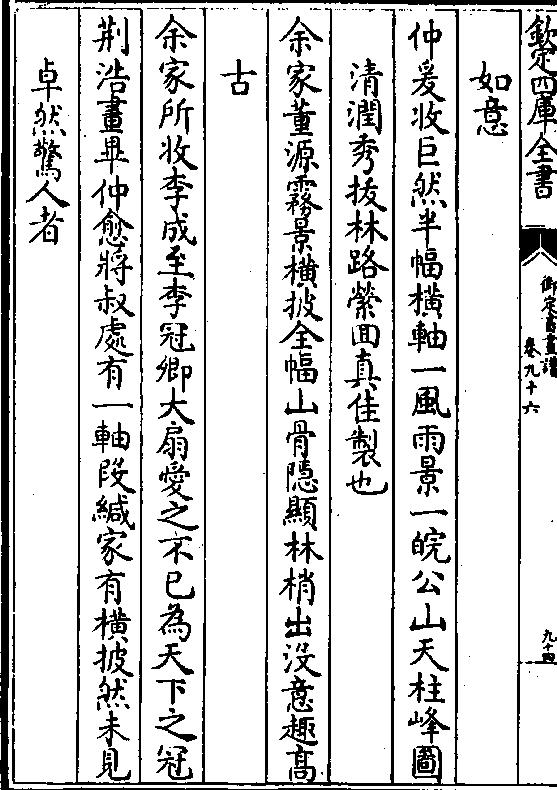 欽定四庫全書
御定書畫譜
卷九十六
九十四
如意
仲爰收巨然半幅橫軸一風雨景一皖公山天柱峰圖
清潤秀拔林路縈回真佳製也
余家董源霧景橫披全幅山骨隱顯林梢出沒意趣高
古
余家所收李成至李冠卿大扇愛之不已為天下之冠
荆浩畫畢仲愈將叔處有一軸段緘家有橫披然未見
卓然驚人者